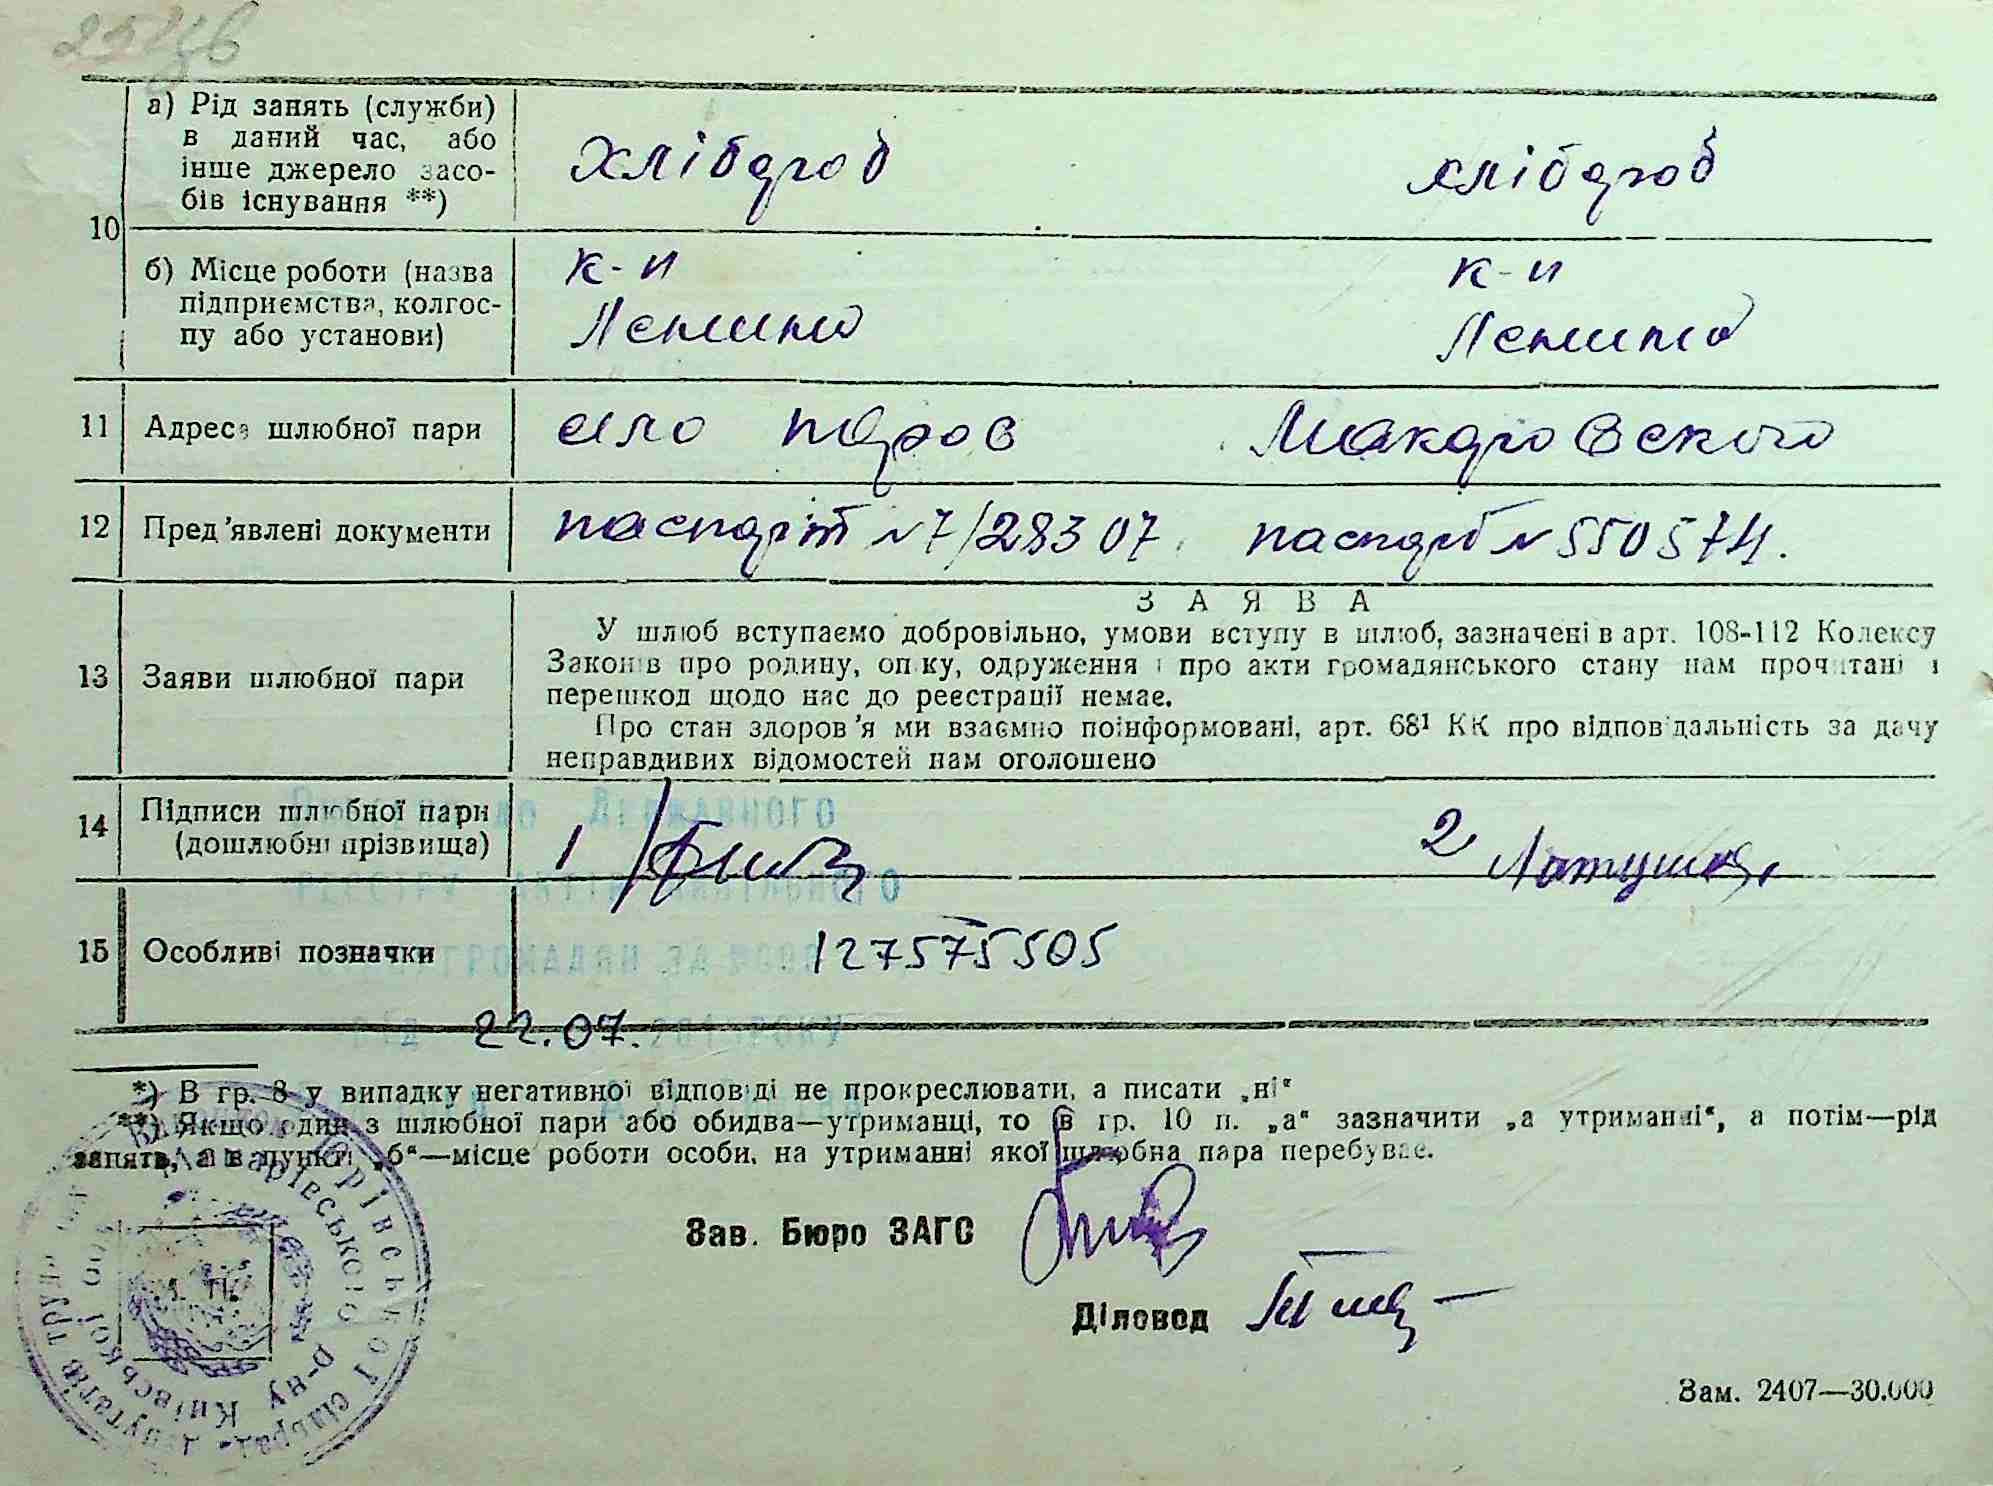 а) Рід занять (служби)
в даний час, або
інше джерело засо-
бів існування **)
хлібороб хлібороб
10
б) Місце роботи (назва
підприємства, колгос-
пу або установи)
к-п к-п
Леніна Леніна
11 Адреса шлюбної пари село Макарівського
12 Пред'явлені документи паспорт №7/28307 паспорт № 550574.
13 Заяви шлюбної пари
ЗАЯВА
У шлюб вступаємо добровільно, умови вступу в шлюб, зазначені в арт. 108-112 Кодексу
Законів про родину, опіку, одруження і про акти громадянського стану нам прочитані і
перешкод щодо нас до реєстрації немає.
Про стан здоров'я ми взаємно поінформовані, арт. 68¹ КК про відповідальність за дачу
неправдивих відомостей нам оголошено
14 Підписи шлюбної пари
(дошлюбні прізвища)
1 2
Державного
15 Особливі позначки 127575505
22.07.
*) В гр. 8 у випадку негативної відповіді не прокреслювати, а писати „ні“
**) Якщо один з шлюбної пари або обидва—утриманці, то в гр. 10 п. „а“ зазначити „а утриманні“, а потім—рід
занять, а в пункті „б“—місце роботи особи, на утриманні якої шлюбна пара перебуває.
Зав. Бюро ЗАГС
Діловод
Зам. 2407—30.000